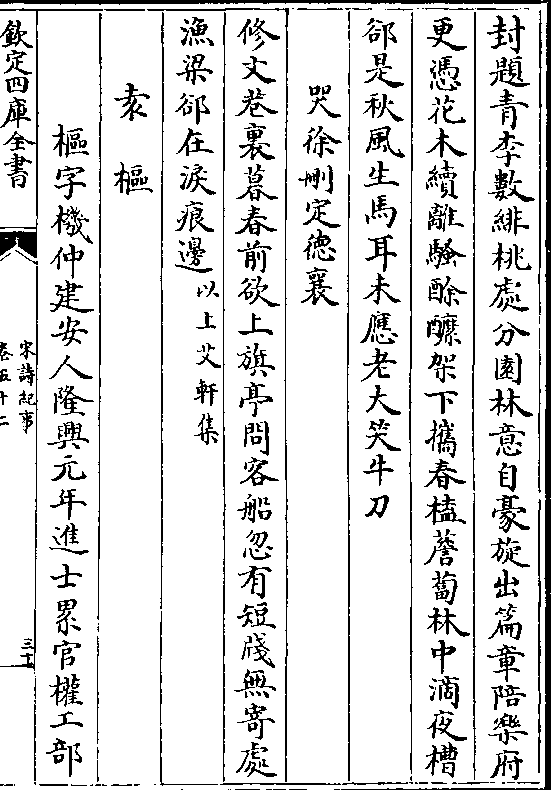 封題青李數緋桃處分園林意自豪旋出篇章陪樂府
更憑花木續離騷酴醿架下攜春榼薝蔔林中滴夜槽
郤是秋風生馬耳未應老大笑牛刀
哭徐刪定德襄
修文巷裏暮春前欲上旗亭問客船忽有短牋無寄處
漁梁郤在淚痕邊以上艾軒集
袁樞
樞字機仲建安人隆興元年進士累官權工部
欽定四庫全書
宋詩紀事
卷五十二